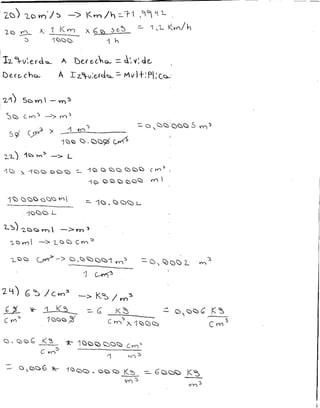 20) 20 m/s --> Km/h = 71,9942
20 m/s x 1 Km/1000 x 60 seg/1 h = 1,2 Km/h
Izquierda A Derecha = divide
Derecha A Izquierda = Multiplica
21) 50 ml - m³
50 cm³ -> m³
50 cm³ x 1 m³/1000.000 cm³ = 0,00005 m³
22). 10 m³ -> L
10 x 1000000 = 10000000 cm³.
10.000000 ml
10000000 ml/1000 L = 10.000 L
23) 200 ml -> m³
200 ml -> 200 cm³
200 cm³ -> 0,000001 m³/1 cm³ = 0,0002 m³
24) 6 g/cm³ -> Kg/m³
6 g/cm³ * 1 Kg/1000 g = 6 Kg/cm³ x 1000 = 0,006 Kg/cm³
0.006 Kg/cm³ * 1000000 cm³/1 m³
= 0,006 * 1000.000 Kg/m³ = 6000 Kg/m³